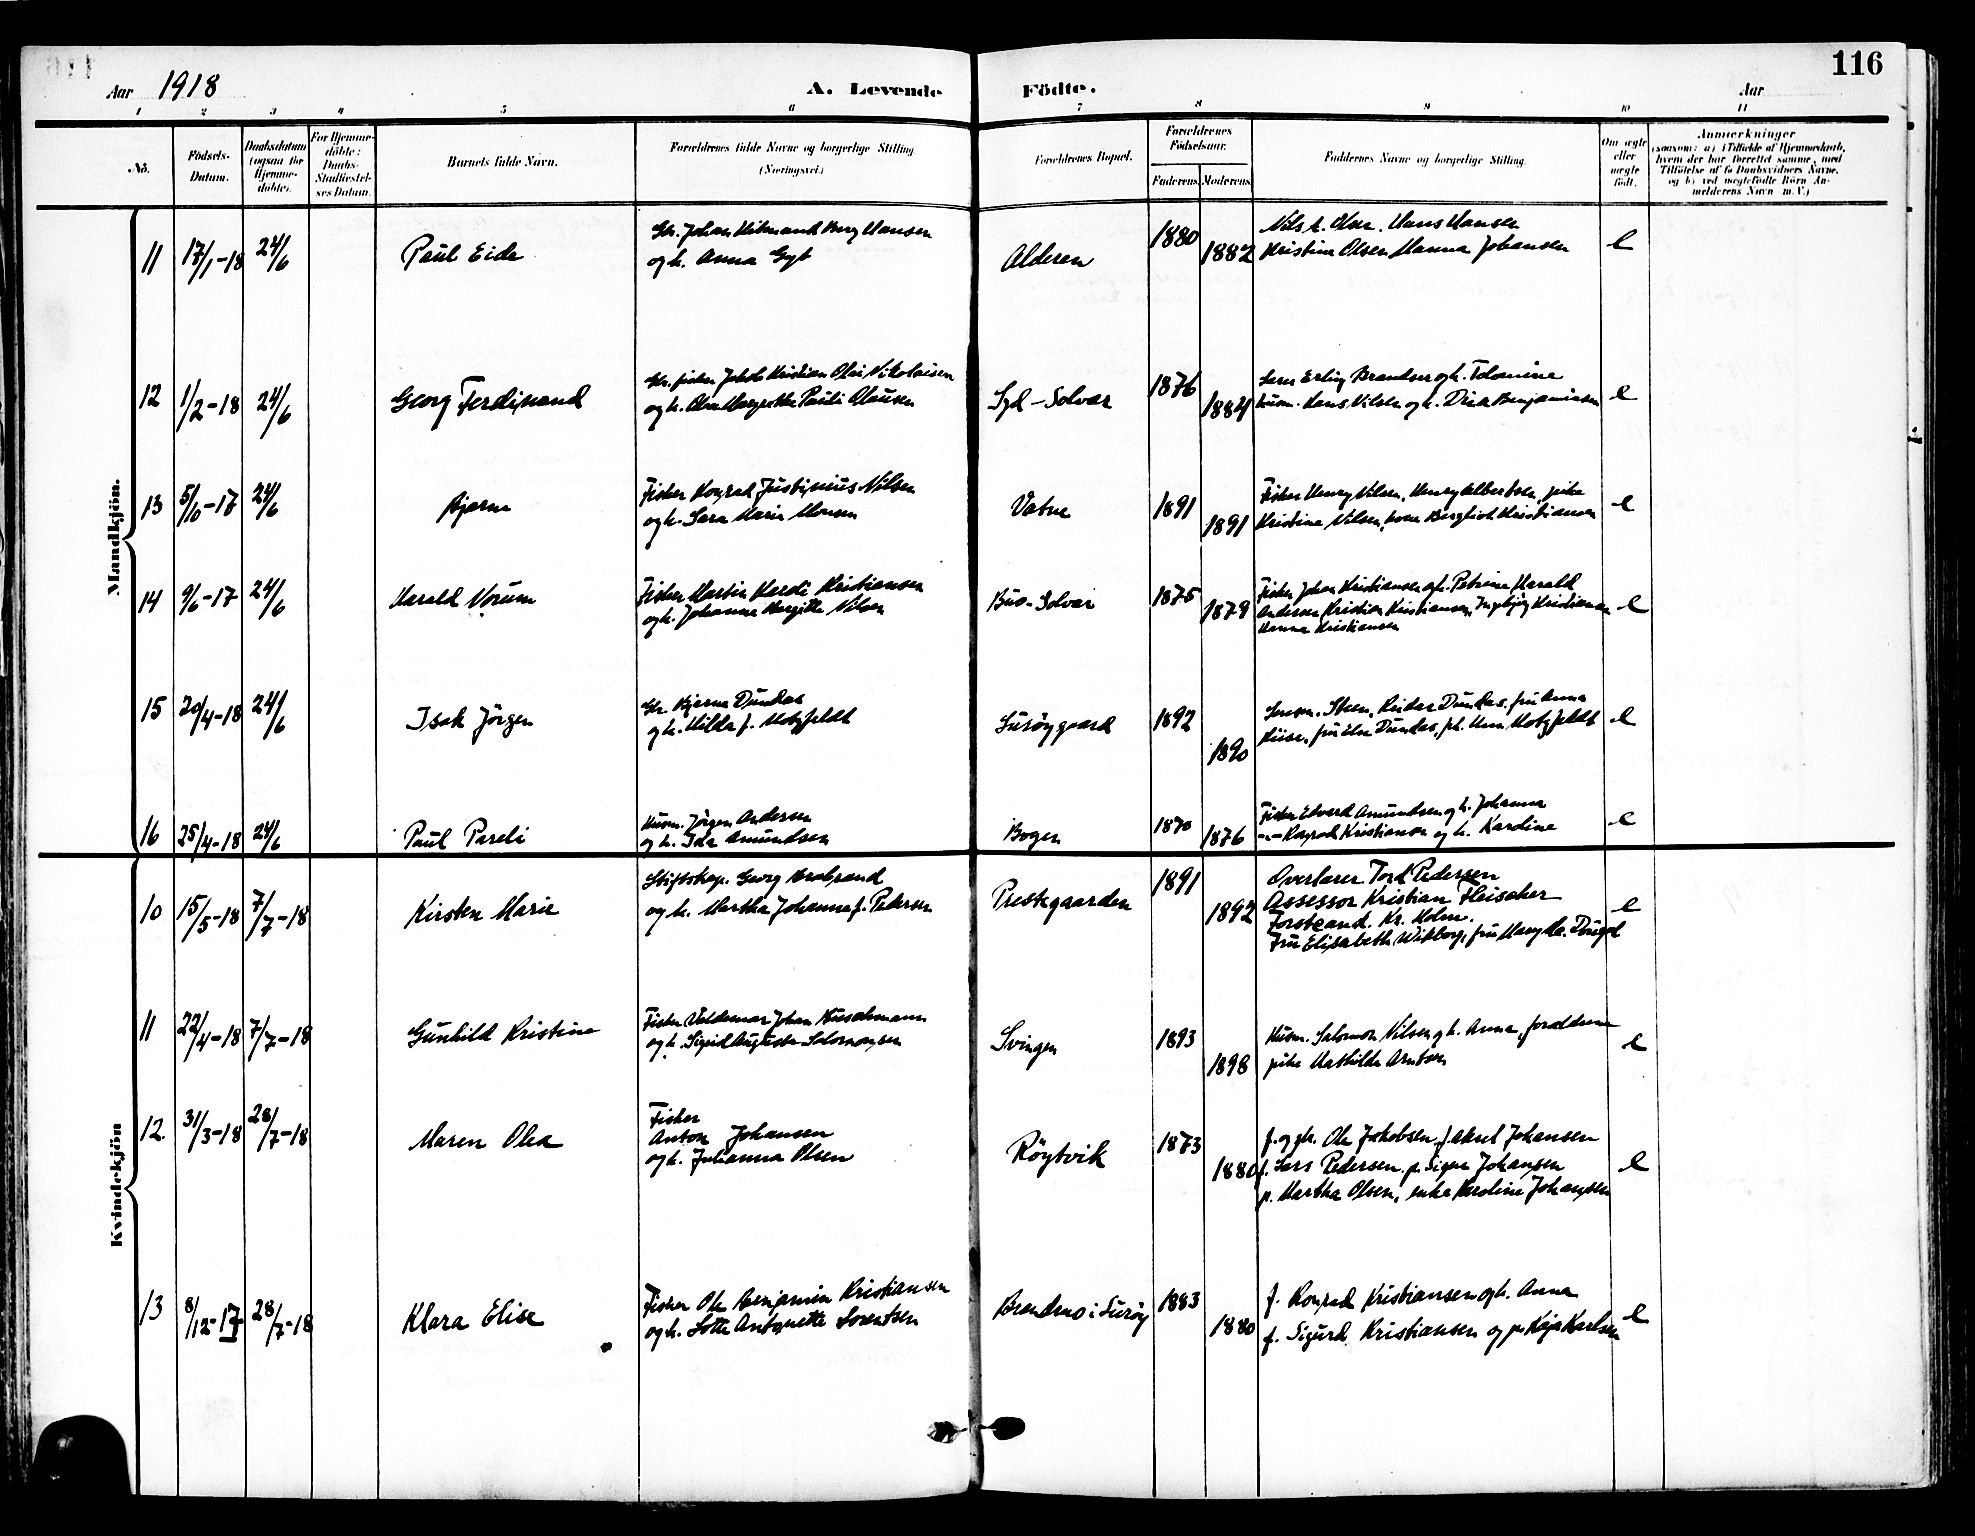 116
Aar 1918
A. Levende Födte.
Aar
1 2 3 4 5 6 7 8 9 10 11
No.
Födsels-Datum.
Daabsdatum (ogsaa for Hjemmedöbte).
For Hjemmedöbte: Daabs-Stadfæstelses Datum.
Barnets fulde Navn.
Forældrenes fulde Navne og borgerlige Stilling (Næringsvei.)
Forældrenes Bopæl.
Forældrenes Födselsaar.
Faderens Moderens
Faddernes Navne og borgerlige Stilling.
Om ægte eller uægte födt.
Anmærkninger
(saasom: a) i Tilfælde af Hjemmedaab, hvem der har forrettet samme, med Tilföielse af to Daabsvidners Navne, og b) ved uægtefödte Börn Anmelderens Navn m. V.)
Mandkjön.
11 17/1-18 24/6 Paul Eide
Gr. Johan Hilmand Berg Hansen
og h. Anna
Alderen 1880 1882
Nils A. Olsen, Hans Hansen
Kristine Olsen Hanna Johansen
e
12 1/2-18 24/6 Georg Ferdinand
Gr. fisker Jakob Kristian Olai Nikolaisen
og h. Margrethe Pauli Olausen
Syd-Solvær 1876 1884
Erling Brandser og h. Tolamine
husm. Hans Nilsen og h. Benjaminsen
e
13 5/10-17 24/6 Bjarne
Fisker Konrad Justinius Nilsen
og h. Sara Marie Monsen
Vatne 1891 1891
Fisker Henry Nilsen, Henry Albertsen, pike
Kristine Nilsen, kone Bergliot Kristiansen
e
14 9/6-17 24/6 Harald Norum
Fisker Martin Hardi Kristiansen
og h. Johanna Bergitte Nilsen
Buo-Solvær 1875 1879
Fisker Johan Kristiansen og h. Petrine Harald
Andersen Kristian Kristiansen, Ingebjörg Kristiansen
Hanna Kristiansen
e
15 20/4-18 24/6 Isak Jörgen
Gr. Bjarne Dundas
og h. Hilda f. Motzfeldt
Luröygaard 1892 1890
Steen, Reidar Dundas, fru Anna
fru Else Dundas, Motzfeldt
e
16 25/4-18 24/6 Paul Pareli
Husm. Jörgen Andersen
og h. Ida Amundsen
Bogen 1870 1876
Fisker Edvard Amundsen og h. Johanna
-"- Konrad Kristiansen og h. Kardine
e
Kvindekjön
10 15/5-18 7/7-18 Kirsten Marie
Stiftskap. Georg Brabrand
og h. Martha Johanna f. Pedersen
Prestegaarden 1891 1892
Overlærer Tord Pedersen
Assessor Kristian Fleischer
Forstkand. Kr. Holm.
Fru Elisabeth Wikborg, fru
e
11 22/4-18 7/7-18 Gunhild Kristine
Fisker Valdemar Johan Buschmann
og h. Sigrid Augusta Salomonsen
Svingen 1893 1898
Husm. Salomon Nilsen og h. Anna, forældrene
pike Mathilde Arntsen
e
12. 31/3-18 28/7-18 Maren Olea
Fisker
Anton Johansen
og h. Julianna Olsen
Röytvik 1873 1880
f. og gr. Ole Jakobsen, f. Aksel Johansen
f. Lars Pedersen. p. Signe Johansen
p. Martha Olsen, enke Karoline Johansen
e
13 8/12-17 28/7-18 Klara Elise
Fisker Ole Benjamin Kristiansen
og h. Lotte Antonette Lorentsen
Brændmo i Luröy 1883 1880
f. Konrad Kristiansen og h. Anna
f. Sigurd Kristiansen og p. Kaja Karlsen
e